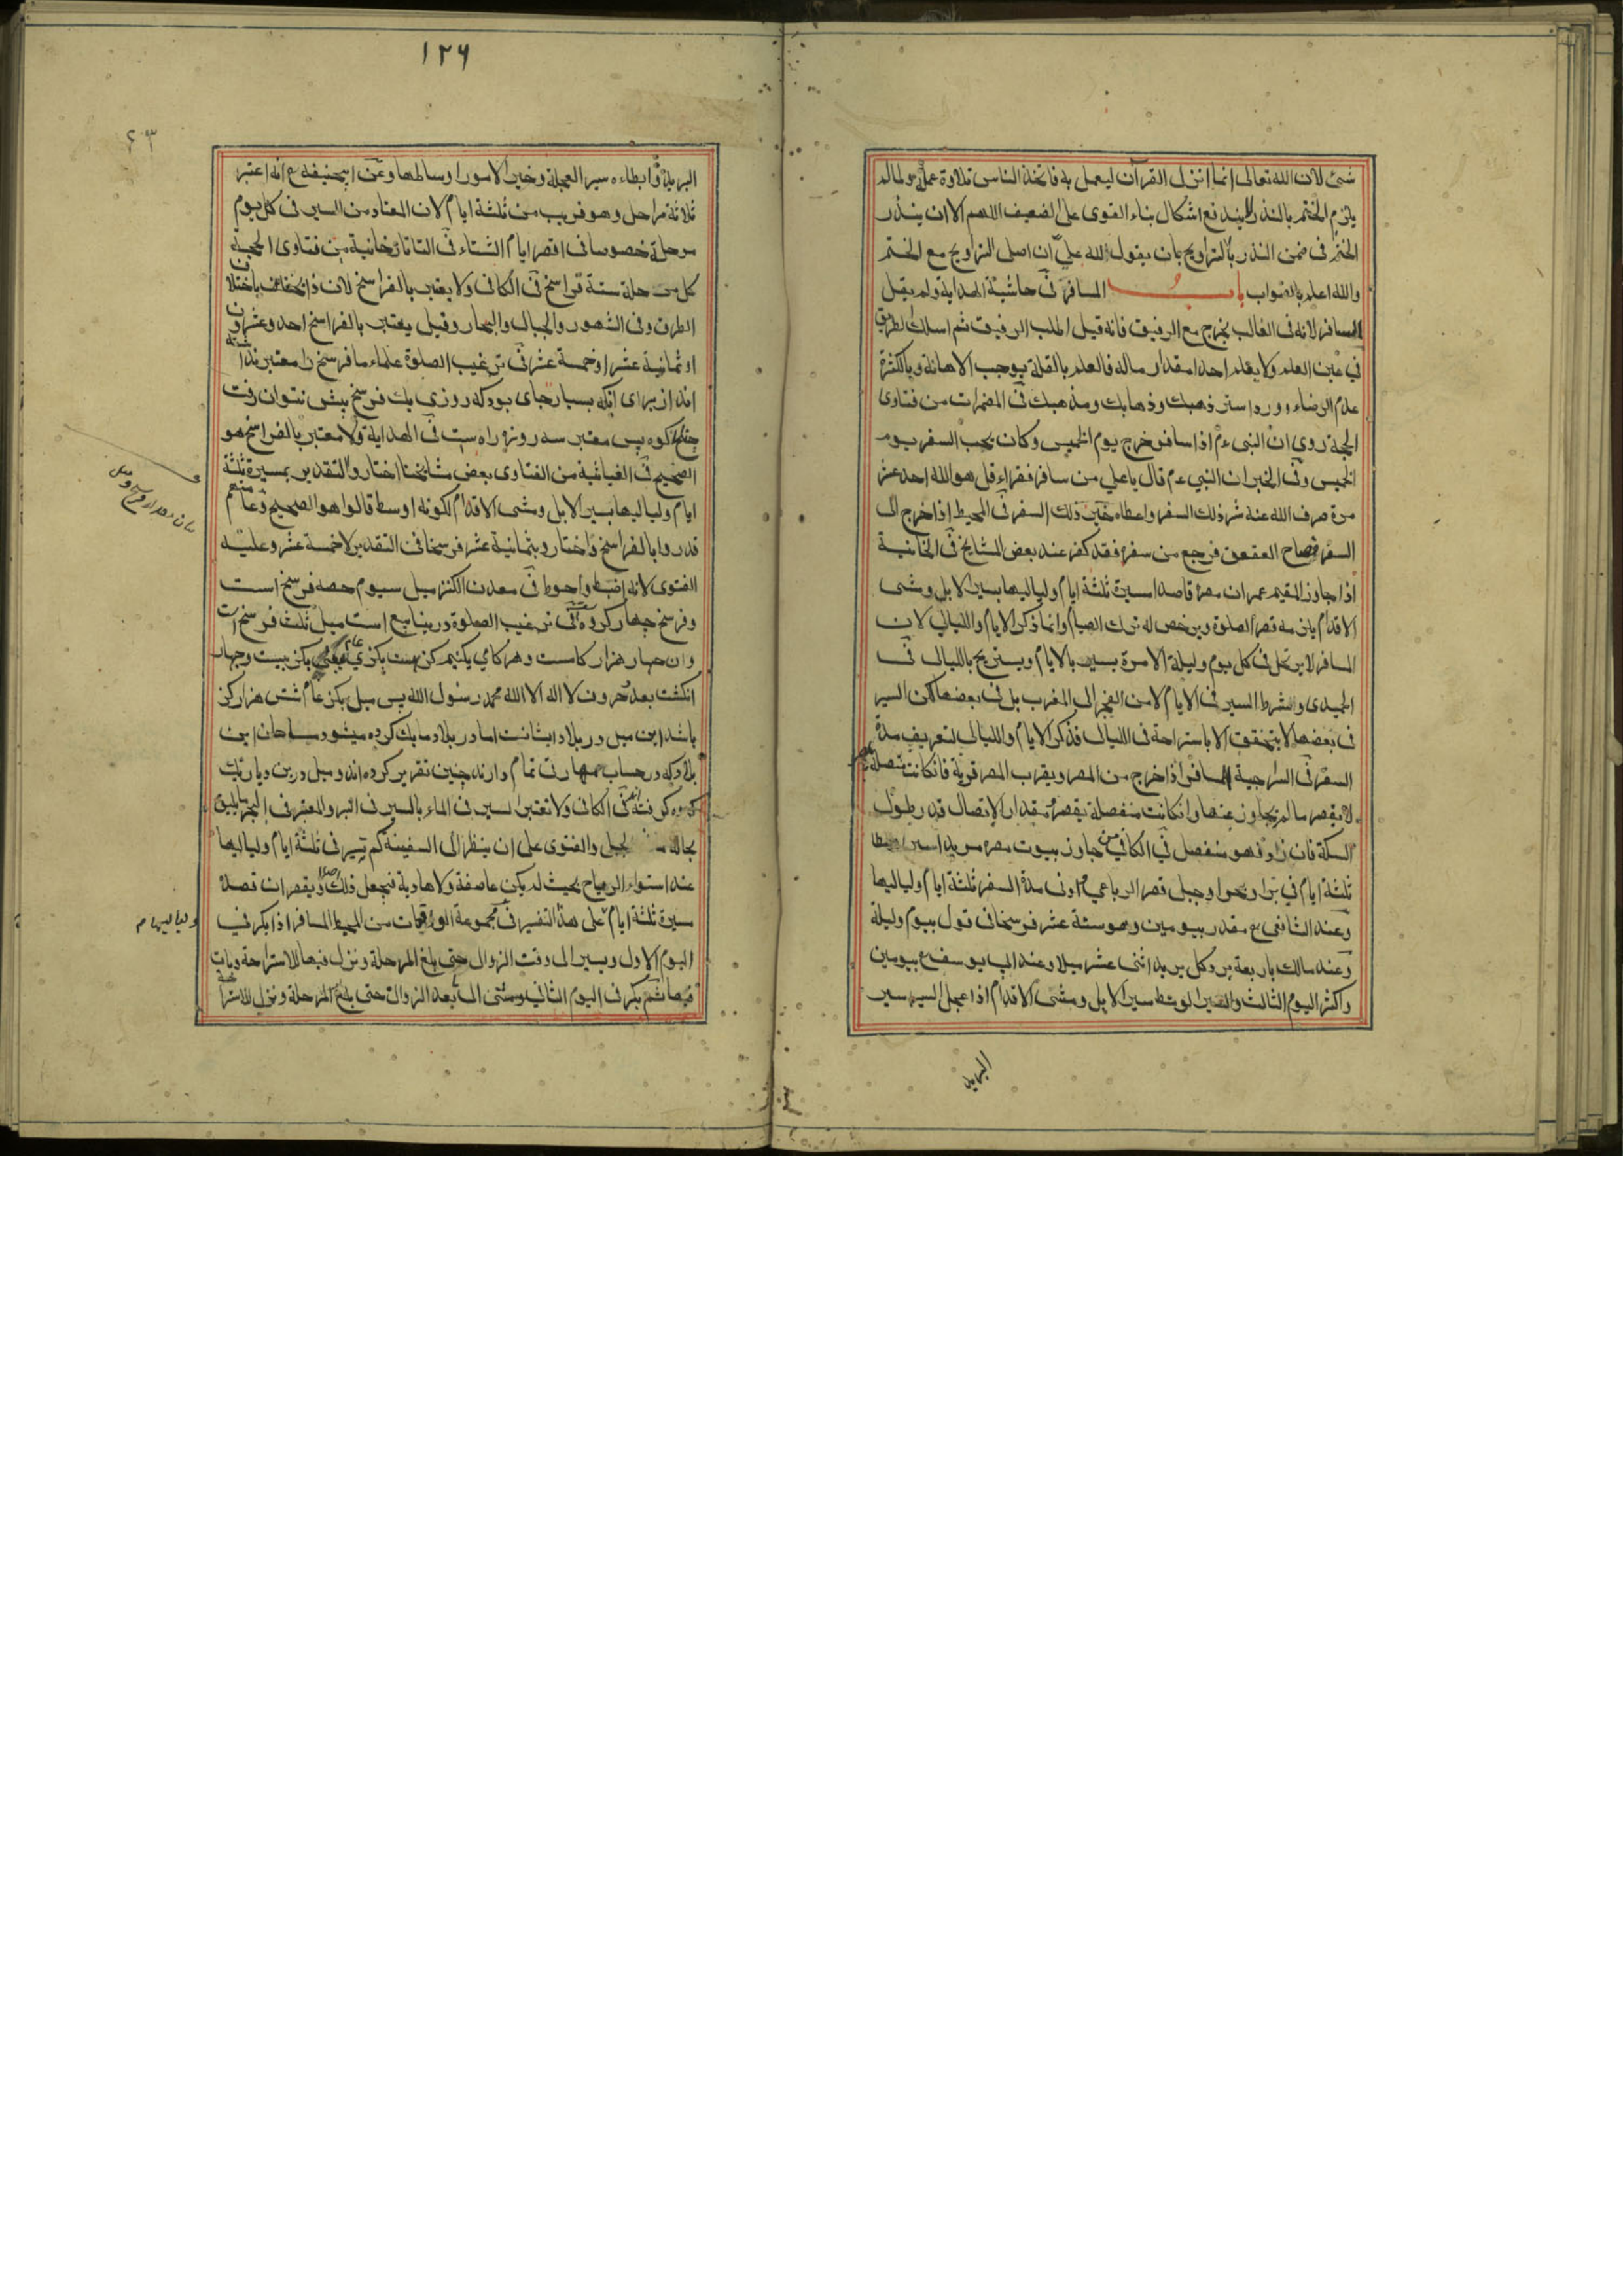 شئ لان الله تعالى انما انزل القرآن ليعمل به فاتخذ الناس تلاوة عملا ولمالم
يلزم الختم بالنذر اشكال بناء القوى على الضعيف اللهم الا ان ينذر
الختم فى ضمن النذر بالتراويح بان يقول لله علي ان اصلى التراويح مع الختم
والله اعلم بالصواب باب المسافر فى حاشية الهداية ولم يقل
المسافر لانه فى الغالب يخرج مع الرفيق فانه قيل اطلب الرفيق ثم اسلك الطريق
في عين العلم ولا يعلم احدا مقدار ماله فالعلم بالقلة يوجب الاهانة وبالكثرة
عدم الرضاء وورد استر ذهبك وذهابك ومذهبك فى المضمرات من فتاوى
الحجة روي ان النبى عم اذا سافر خرج يوم الخميس وكان يحب السفر يوم
الخميس وفى الخبر ان النبي عم قال يا علي من سافر فقراء قل هو الله احد عشر
مرة صرف الله عنه شر ذلك السفر واعطاه خير ذلك السفر فى المحيط اذا خرج الى
السفر فصاح العقعق فرجع من سفره فقد كفر عند بعض المشايخ فى الخانية
اذا جاوز المقيم عمران مصره قاصدا مسيرة ثلثة ايام ولياليها بسير الابل ومشى
الاقدام يلزمه قصر الصلوة ويرخص له ترك الصيام وانما ذكر الايام والليالى لان
المسافر لا يرتحل فى كل يوم وليلة الا مرة يسير بالايام ويستريح بالليالى فى
السير فى الايام لا من الفجر الى المغرب بل فى بعضها لكن السير
فى بعضها لا يتحقق الا باستراحة فى الليالى فذكر الايام والليالى لتعريف مدة
السفر فى السراجية المسافر اذا خرج من المصر وبقرب المصر قرية فان كانت متصلة
لا يقصر ما لم يجاوز عنها وان كانت منفصلة يقصر مقدار الاتصال قدر طول
السكة فان زاد فهو منفصل فى الكافي من جاوز بيوت مصره مريدا سيرا وسطا
ثلثة ايام في بر او بحر او جبل قصر الرباعي ادنى مدة السفر ثلثة ايام ولياليها
وعند الشافعى مقدر بيومين وهو ستة عشر فرسخا فى قول بيوم وليلة
وعند مالك باربعة برد كل بريد اثنى عشر ميلا وعند ابي يوسف بيومين
واكثر اليوم الثالث والسير الوسط سير الابل ومشى الاقدام اذا عجل السير سير
البريد
١٢٦
البريد وابطاءه سير العجلة وخير الامور اوساطها وعن ابيحنيفه انه اعتبر
ثلاثة مراحل وهو قريب من ثلثة ايام لان المعتاد من السير فى كل يوم
مرحلة خصوصا فى اقصر ايام الشتاء فى التاتارخانية من فتاوى الحجة
كل مرحلة ستة فراسخ فى الكافى ولا يعتبر بالفراسخ لان ذا يختلف باختلاف
الطرق وفى السهول والجبال والبحار وقيل يعتبر بالفراسخ احد وعشرون
او ثمانية عشر او خمسة عشر فى ترغيب الصلوة علماء ما فرسخ را معتبر نداشته
اند از براى انكه بسيار جاى بود كه روزى يك فرسخ بيش نتوان رفت
كوه پس معتبر سه روزه راه ست فى الهداية ولا معتبر بالفراسخ هو
الصحيح فى الغياثية من الفتاوى بعض مشايخنا اختاروا التقدير بمسيرة ثلثة
ايام ولياليها بسير الابل ومشى الاقدام لكونه اوسط قالوا هو الصحيح وعامتهم
قدروا بالفراسخ واختاروا بثمانية عشر فرسخا فى التقدير لا خمسة عشر وعليه
الفتوى لانه اضبط واحوط فى معدن الكنز ميل سيوم حصه فرسخ است
وفرسخ چهار كروه فى ترغيب الصلوة در ينابيع است ميل ثلث فرسخ است
وان چهار هزار كامست وهر كامي يكنيم كز بيست وچهار
انكشت بعدد حروف لا اله الا الله محمد رسول الله پس ميل بكز عام شش هزار كز
باشد اين ميل در بلاد اما در بلاد ما يك كروه ميشود مساحان اين
بلاد كه در حساب مهارت تمام دارند چنين تقرير كرده اند وميل درين ديار يك
كروه فى الكافى ولا تعتبر السير فى الماء بالسير فى البر والمعتبر فى البحر ما يليق
بحاله الجبل والفتوى على ان ينظر الى السفينة كم تسير فى ثلثة ايام ولياليها
عند استواء الرياح بحيث لم يكن عاصفة ولا هادية فيجعل ذلك اصلا ويقصر ان قصد
مسيرة ثلثة ايام على هذا التفسير فى مجموعة من المحيط المسافر اذا بكر فى
اليوم الاول ويسير الى وقت الزوال حتى يلغ المرحلة ونزل فيها للاستراحة وبات
فيها ثم بكر فى اليوم الثاني ومشى الى بعد الزوال حتى بلغ المرحلة ونزل للاستراحة
ولياليها م